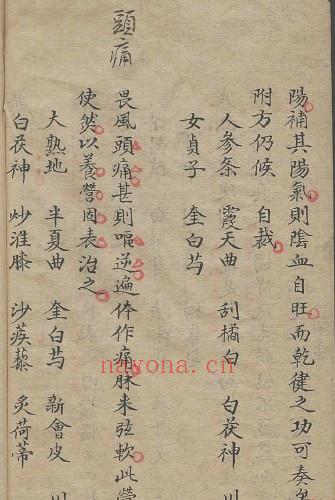 陽補其陽氣則陰血自旺而乾健之功可奏
附方仍候 自裁
人參条 霞天曲 刮橘白 白茯神 川
女貞子 奎白芍
頭痛
畏風頭痛甚則嘔逆遍体作痛脉来弦軟此營
使然以養營固表治之
大熟地 半夏曲 奎白芍 新會皮 川
白茯神 炒淮膝 沙蒺藜 炙荷蒂
nayona.cn